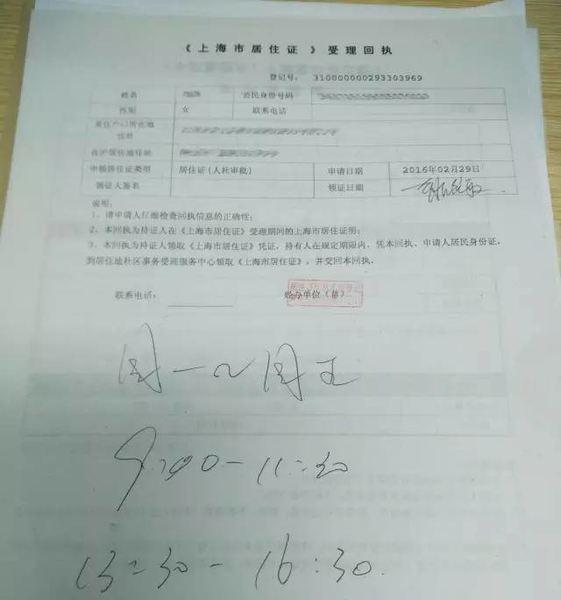 《上海市居住证》受理回执
登记号： 310000000293303969
姓名 公民身份号码
性别 女 联系电话
来沪居住地详址
申领居住证类型 居住证(人社审批) 申请日期 2016年02月29日
领证人签名 领证日期
说明：
1、请申请人仔细检查回执信息的正确性；
2、本回执为持证人在《上海市居住证》受理期间的上海市居住证明；
3、本回执为持证人领取《上海市居住证》凭证，持有人在规定期限内，凭本回执、申请人居民身份证，
到居住地社区事务受理服务中心领取《上海市居住证》，并交回本回执。
联系电话： 经办单位(章)
周一~周五
9:00-11:30
13:30-16:30.